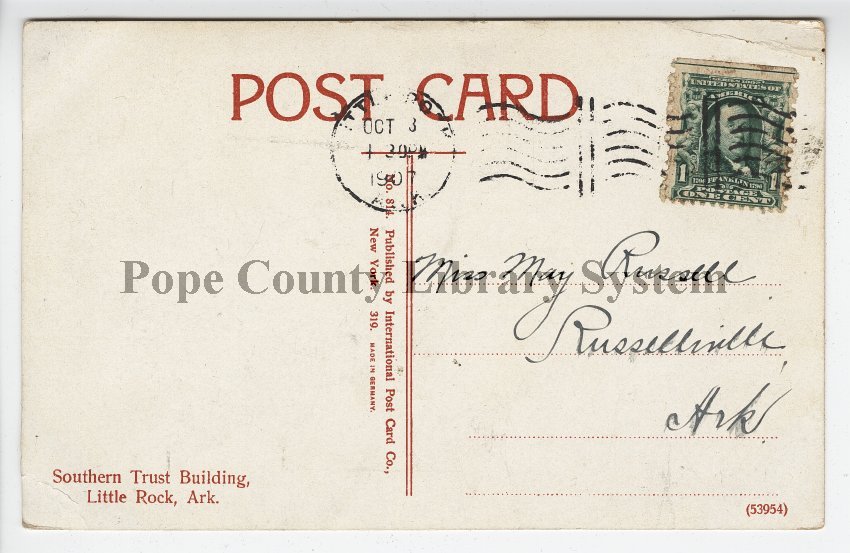 POST CARD
LITTLE ROCK
OCT 3
1 30PM
1907
ARK
SERIES 1902
UNITED STATES OF
AMERICA
1 FRANKLIN 1
POSTAGE
ONE CENT
No. 814. Published by International Post Card Co.,
New York 319. MADE IN GERMANY.
Pope County Library System
Miss May Russell
Russellville
Ark
Southern Trust Building,
Little Rock, Ark.
(53954)